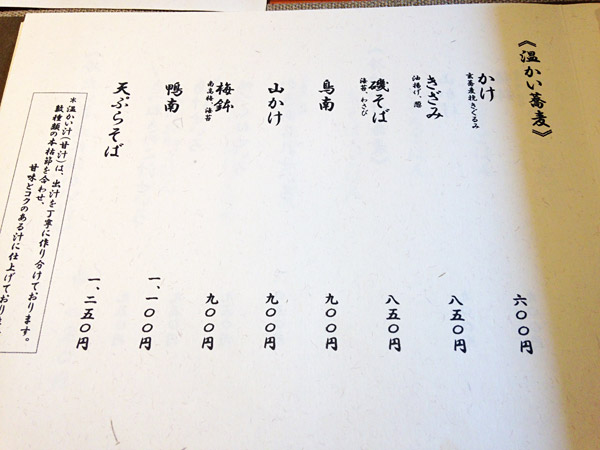 《温かい蕎麦》
かけ
玄蕎麦挽きぐるみ
六〇〇円
きざみ
油揚げ、葱
八五〇円
磯そば
海苔、わさび
八五〇円
鳥南
九〇〇円
山かけ
九〇〇円
梅鉢
南高梅、海苔
九〇〇円
鴨南
一、一〇〇円
天ぷらそば
一、二五〇円
※温かい汁(甘汁)は、出汁を丁寧に作り分けております。
数種類の本枯節を合わせ、
甘味とコクのある汁に仕上げており